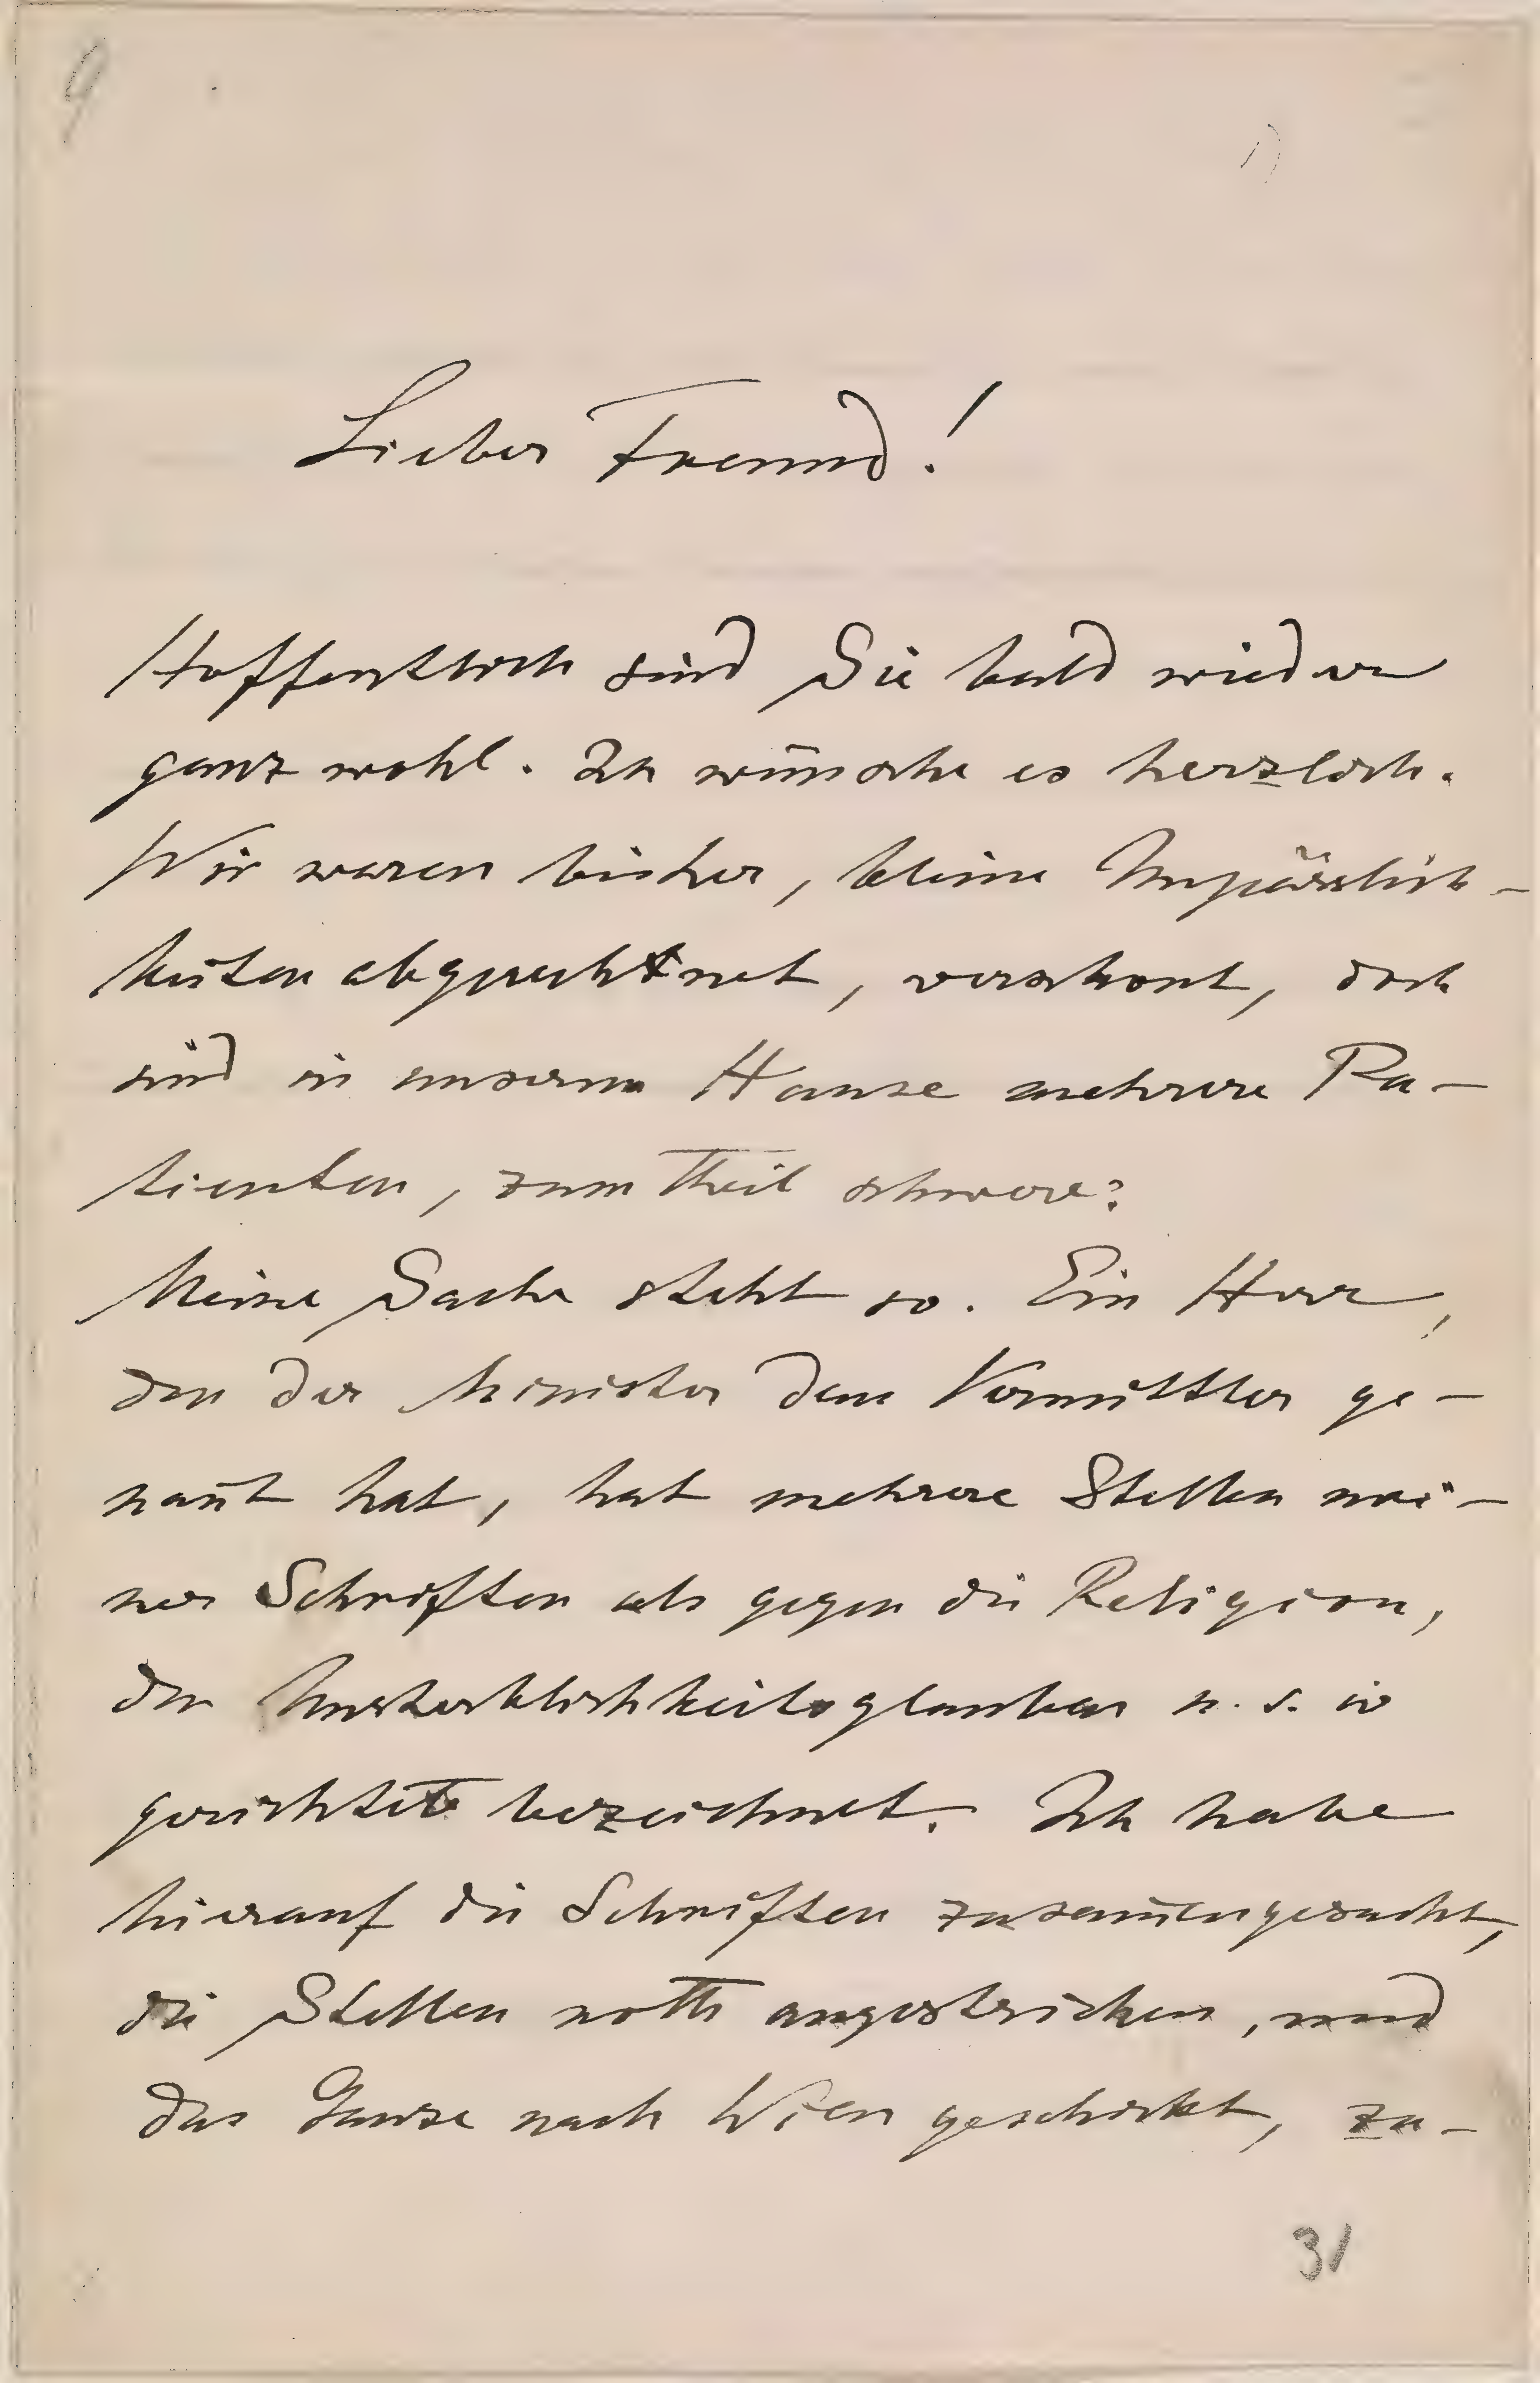 9
1)
Lieber Freund!
Hoffentlich sind Sie bald wieder
ganz wohl. Ich wünsche es herzlich.
Wir waren bisher, kleine Unpässlich-
keiten abgerechnet, verschont, doch
sind in unserem Hause mehrere Pa-
tienten, zum Theil schwere.
Meine Sache steht so. Ein Herr,
den der Minister dem Vermittler ge-
nannt hat, hat mehrere Stellen mei-
ner Schriften als gegen die Religion,
den Unsterblichkeitsglauben u. s. w
gerichtet bezeichnet. Ich habe
hierauf die Schriften zusammengesucht,
die Stellen roth angestrichen, und
das Ganze nach Wien geschickt, zu-
31